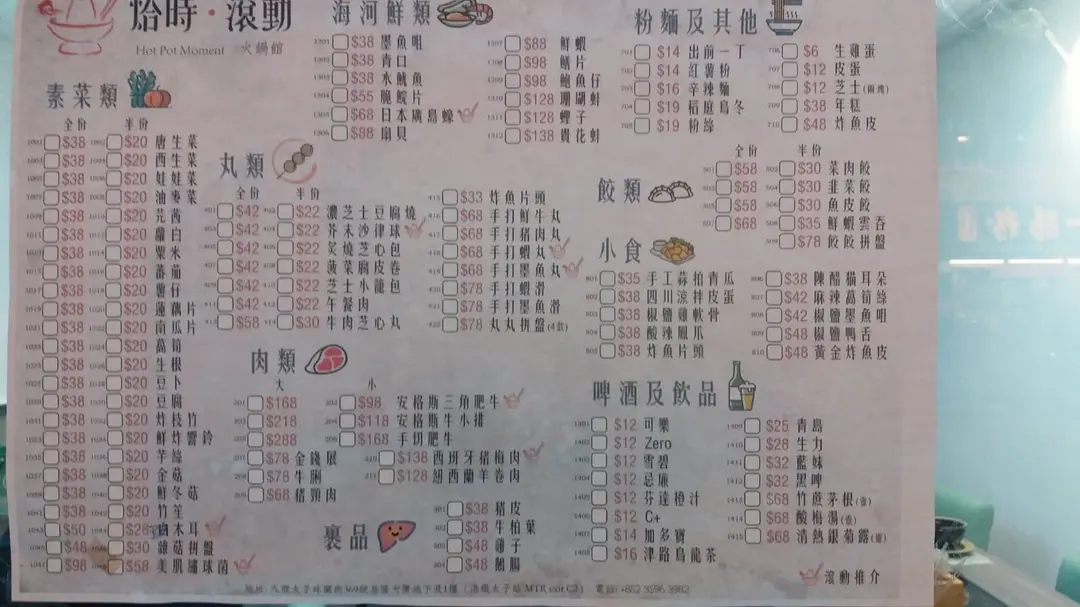 烚時·滾動
Hot Pot Moment 火鍋館
素菜類
全份 半份
$38 $20 唐生菜
$38 $20 西生菜
$38 $20 娃娃菜
$38 $20 油麥菜
$38 $20 芫茜
$38 $20 蘿白
$38 $20 粟米
$38 $20 蕃茄
$38 $20 薯仔
$38 $20 蓮藕片
$38 $20 南瓜片
$38 $20 萵筍
$38 $20 生根
$38 $20 豆卜
$38 $20 豆腐
$38 $20 炸枝竹
$38 $20 鮮炸響鈴
$38 $20 芋絲
$38 $20 金菇
$38 $20 鮮冬菇
$38 $20 竹笙
$50 $28 木耳
$48 $30 雜菇拼盤
$98 $58 美肌繡球菌
海河鮮類
$38 墨魚咀
$38 青口
$38 水魷魚
$55 脆鯇片
$68 日本廣島蠔
$88 扇貝
$88 鮮蝦
$98 鱔片
$98 鮑魚仔
$128 珊瑚蚌
$128 蟶子
$138 貴花蚌
丸類
全份 半份
$42 $22 濃芝士豆腐燒
$42 $22 芥末沙律球
$42 $22 炙燒芝心包
$42 $22 菠菜腐皮卷
$42 $22 芝士小籠包
$42 $22 午餐肉
$58 $30 牛肉芝心丸
$33 炸魚片頭
$68 手打鮮牛丸
$68 手打豬肉丸
$68 手打蝦丸
$68 手打墨魚丸
$78 手打蝦滑
$78 手打墨魚滑
$78 丸丸拼盤(4款)
肉類
大 小
$168 $98 安格斯三角肥牛
$218 $118 安格斯牛小排
$288 $168 手切肥牛
$78 金錢𦟌
$78 牛脷
$68 豬頸肉
$138 西班牙豬梅肉
$128 紐西蘭羊卷肉
裏品
$38 豬皮
$38 牛柏葉
$48 雞子
$48 鵝腸
粉麵及其他
$14 出前一丁
$14 紅薯粉
$16 辛辣麵
$19 稻庭烏冬
$19 粉絲
$6 生雞蛋
$12 皮蛋
$12 芝士
$38 年糕
$48 炸魚皮
餃類
全份 半份
$58 $30 菜肉餃
$58 $30 韭菜餃
$58 $30 魚皮餃
$68 $35 鮮蝦雲吞
$78 餃餃拼盤
小食
$35 手工蒜拍青瓜
$38 四川涼拌皮蛋
$38 椒鹽雞軟骨
$38 酸辣鳳爪
$38 炸魚片頭
$38 陳醋貓耳朵
$42 麻辣萵筍絲
$42 椒鹽墨魚咀
$48 椒鹽鴨舌
$48 黃金炸魚皮
啤酒及飲品
$12 可樂
$12 Zero
$12 雪碧
$12 忌廉
$12 芬達橙汁
$12 C+
$14 加多寶
$16 津路烏龍茶
$25 青島
$28 生力
$32 藍妹
$32 黑啤
$68 竹蔗茅根(壺)
$68 酸梅湯(壺)
$68 清熱銀菊露(壺)
滾動推介